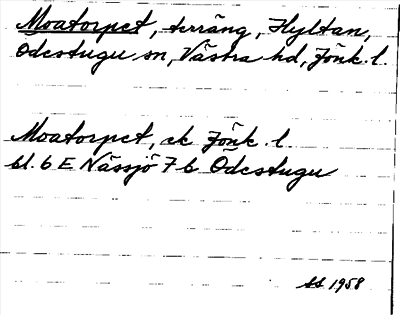 Moatorpet, terräng, Hyltan,
Ödestugu sn, Västra hd, Jönk. l.
Moatorpet, ek Jönk. l.
bl. 6 E Nässjö 7 b Ödestugu
SS 1958